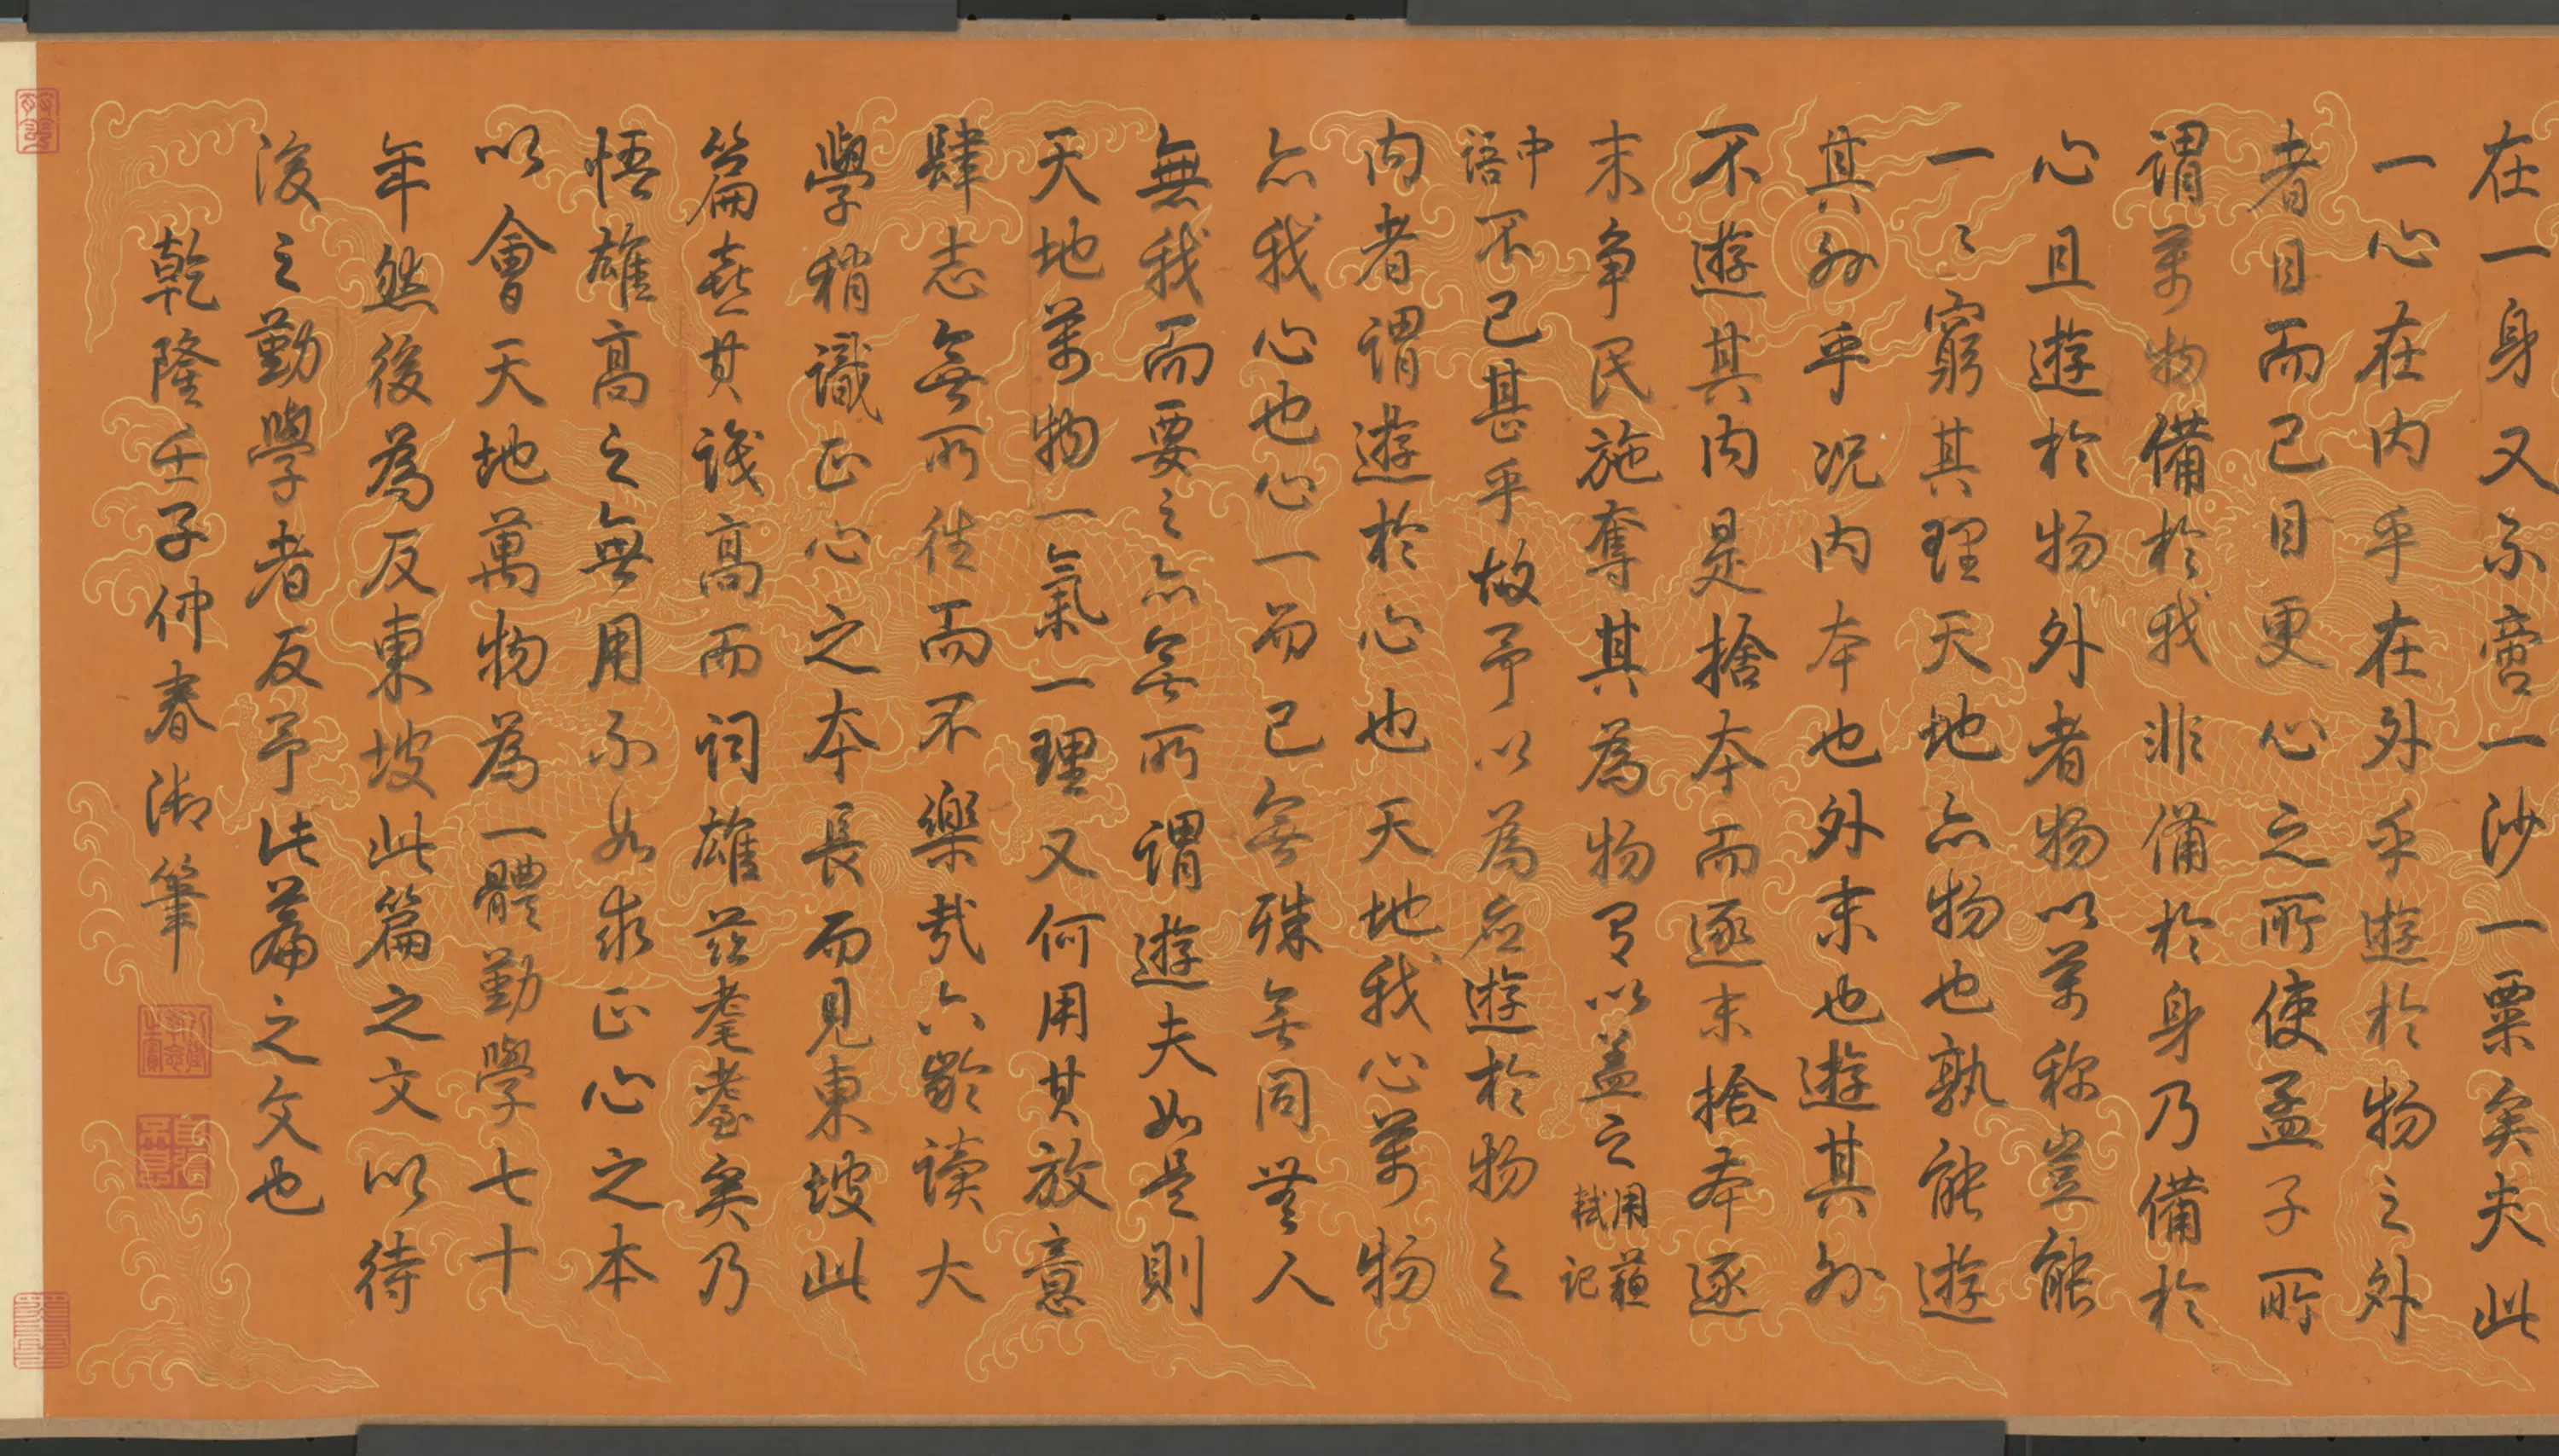 在一身又不啻一沙一粟矣夫此
一心在内乎在外乎遊於物之外
者目而已目更心之所使孟子所
謂萬物備於我非備於身乃備於
心且遊於物外者物以萬称豈能
一々窮其理天地亦物也孰能遊
其外乎况内本也外末也遊其外
不遊其内是捨本而逐末捨本逐
末争民施奪其為物有以盖之用蘓軾记
中語不已甚乎故予以為应遊於物之
内者謂遊於心也天地我心萬物
亦我心也心一而已無殊無同無人
無我而要之亦無所謂遊夫如是則
天地萬物一氣一理又何用其放意
肆志無所往而不樂哉六齡读大
學稍識正心之本長而見東坡此
篇喜其議高而詞雄茲耄耋矣乃
悟雄高之無用不如求正心之本
以會天地萬物為一體勤學七十
年然後為反東坡此篇之文以待
後之勤學者反予此篇之文也
乾隆壬子仲春御筆